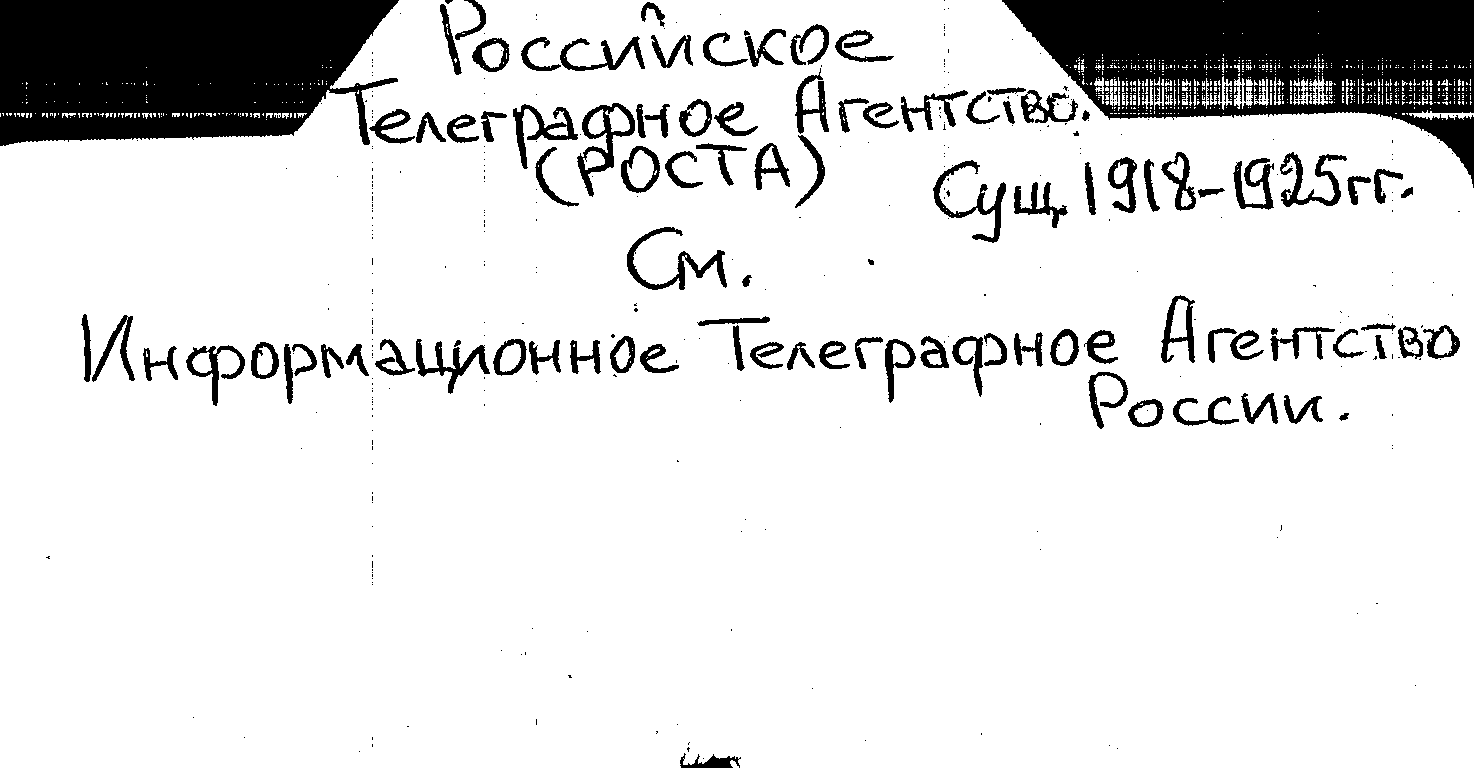 Российское
Телеграфное Агентство.
(РОСТА)
Сущ. 1918-1925гг.
См.
Информационное Телеграфное Агентство
России.